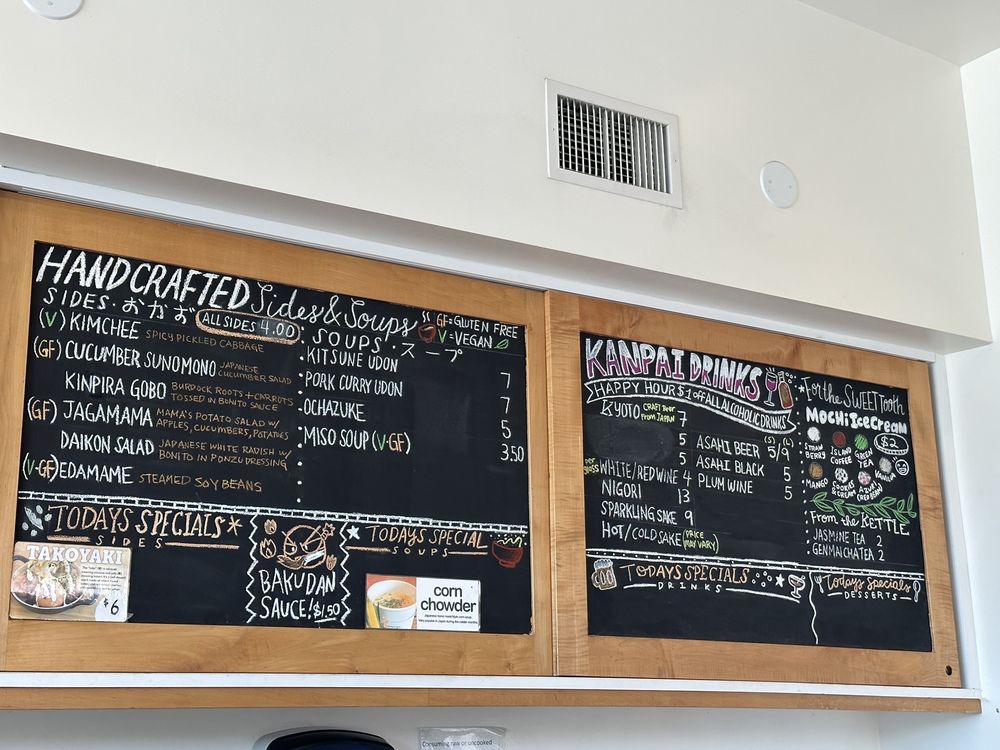 HANDCRAFTED Sides & Soups
GF=GLUTEN FREE
V=VEGAN
SIDES. おかず
ALL SIDES 4.00
(V) KIMCHEE SPICY PICKLED CABBAGE
(GF) CUCUMBER SUNOMONO JAPANESE CUCUMBER SALAD
KINPIRA GOBO BURDOCK ROOTS + CARROTS
TOSSED IN BONITO SAUCE
(GF) JAGAMAMA MAMA'S POTATO SALAD W/
APPLES, CUCUMBERS, POTATOES
DAIKON SALAD JAPANESE WHITE RADISH W/
BONITO IN PONZU DRESSING
(V-GF) EDAMAME STEAMED SOY BEANS
SOUPS. スープ
KITSUNE UDON 7
PORK CURRY UDON 7
OCHAZUKE 5
MISO SOUP (V-GF) 3.50
TODAYS SPECIALS*
SIDES
TAKOYAKI
$6
BAKUDAN
SAUCE! $1.50
TODAYS SPECIAL
SOUPS
corn
chowder
KANPAI DRINKS
HAPPY HOUR $1 OFF ALL ALCOHOLIC DRINKS
KYOTO CRAFT BEER FROM JAPAN 7
5
5
per glass WHITE/RED WINE 4
NIGORI 13
SPARKLING SAKE 9
HOT/COLD SAKE (PRICE MAY VARY)
ASAHI BEER (S) 5/(L) 9
ASAHI BLACK 5
PLUM WINE 5
For the SWEET Tooth
MOCHI ICE CREAM
$2
STRAWBERRY
ISLAND COFFEE
GREEN TEA
MANGO
COOKIES & CREAM
AZUKI RED BEAN
VANILLA
From the KETTLE
JASMINE TEA 2
GENMAICHA TEA 2
TODAYS SPECIALS
DRINKS
Todays Specials
DESSERTS
Consuming raw or uncooked